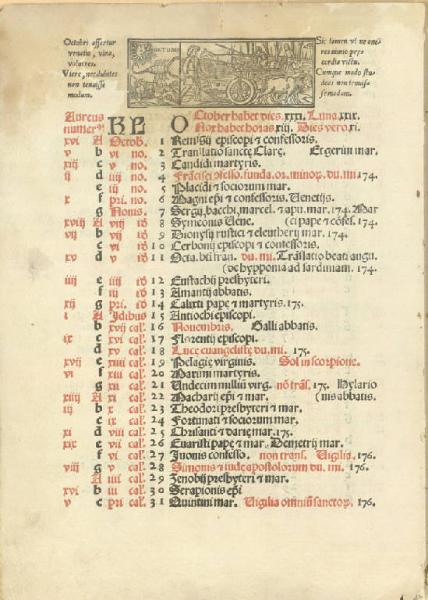 Octobri affertur
venatio, uua,
volucres.
Viere, nec dubites
non tenuisse
modum.
Sic tamen vt ne nimi
reatione
cordia victu.
Cumque modo stu
deas non transis
se modum.
Aureus
numerꝰ
KL
October habet dies. xxxi. Luna. xxix.
Nox habet horas xiij. Dies vero. xi.
xvi A Octob. 1 Remigij episcopi ⁊ confessoris.
v b vi no. 2 Translatio sancte Clare. Et gerini mar.
xiij c v no. 3 Candidi martyris.
ij d iiij no. 4 Francisci ꝯfesso. funda. or. minoꝝ. du. mi. 174.
e iij no. 5 Placidi ⁊ sociorum mar.
x f pri. no. 6 Magni epi ⁊ confessoris. Uenetijs.
g Nonis 7 Sergij, bacchi, marcel. ⁊ apu. mar. 174. Mar
xviij A viij id 8 Symeonis Uene. (ci pape ⁊ cofes. 174.
vij b vij id 9 Dionysij rustici ⁊ eleutherij mar. 174.
c vi id 10 Cerbonij episcopi ⁊ confessoris.
xv d v id 11 Octa. bti fran. du. mi. Traslatio beati augu.
(de hypponia ad sardiniam. 174.
iiij e iiij id 12 Eustachij presbyteri.
f iij id 13 Amantij abbatis.
xij g pri id 14 Calixti pape ⁊ martyris. 175.
i A Idibus 15 Antiochi episcopi.
b xvij cal. 16 Nouembris. Galli abbatis.
ix c xvi cal. 17 Florentij episcopi.
d xv cal. 18 Luce euangeliste du. mi. 175.
xvij e xiiij cal. 19 Pelagie virginis. Sol in scorpione.
vi f xiij cal. 20 Maximi martyris.
g xij cal. 21 Undecim milliu virg. no tras. 175. Hylario
xiiij A xi cal. 22 Macharij epi ⁊ mar. (nis abbatis.
iij b x cal. 23 Theodori presbyteri ⁊ mar.
c ix cal. 24 Fortunati ⁊ sociorum mar.
xi d viij cal. 25 Chrisanti ⁊ darie mar. 175.
xix e vij cal. 26 Euaristi pape ⁊ mar. Demetrij mar.
f vi cal. 27 Iuonis confesso. non trans. Uigilia. 176.
viij g v cal. 28 Simonis ⁊ iude apostolorum du. mi. 176.
A iiij cal. 29 Zenobij presbyteri ⁊ mar.
xvi b iij cal. 30 Serapionis epi
v c pri cal. 31 Quintini mar. Uigilia omniu sanctoꝝ. 176.